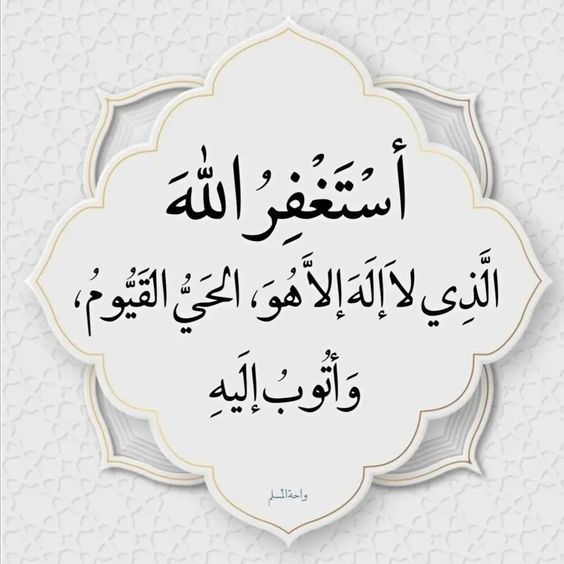 أسْتَغْفِرُ اللهَ
الَّذِي لاَ إلَهَ إلاَّ هُوَ، الحَيُّ القَيُّومُ،
وَأتُوبُ إلَيهِ
واحة المسلم